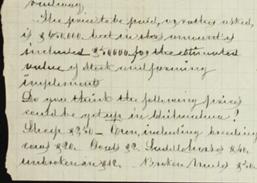 railway.
The price to be paid, or rather asked,
is £60,000 but in this amount is
includes £20000 for the estimated
value of stock and farming
implements
Do you think the following prices
could be got up in Chihuahua?
Sheep $2.50 — Cows, including breeding
cows $20. Goats $2. Saddle horses $40.
unbroken do $12. Broken Mules $50.